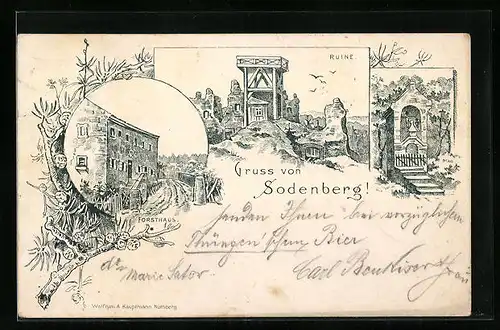 RUINE.
Gruss von
Sodenberg!
FORSTHAUS.
senden Ihnen bei vorzüglichem
Thüngen'schem Bier
Marie Sator.
Carl Benkiser u. Frau
Wolfrum & Hauptmann Nürnberg